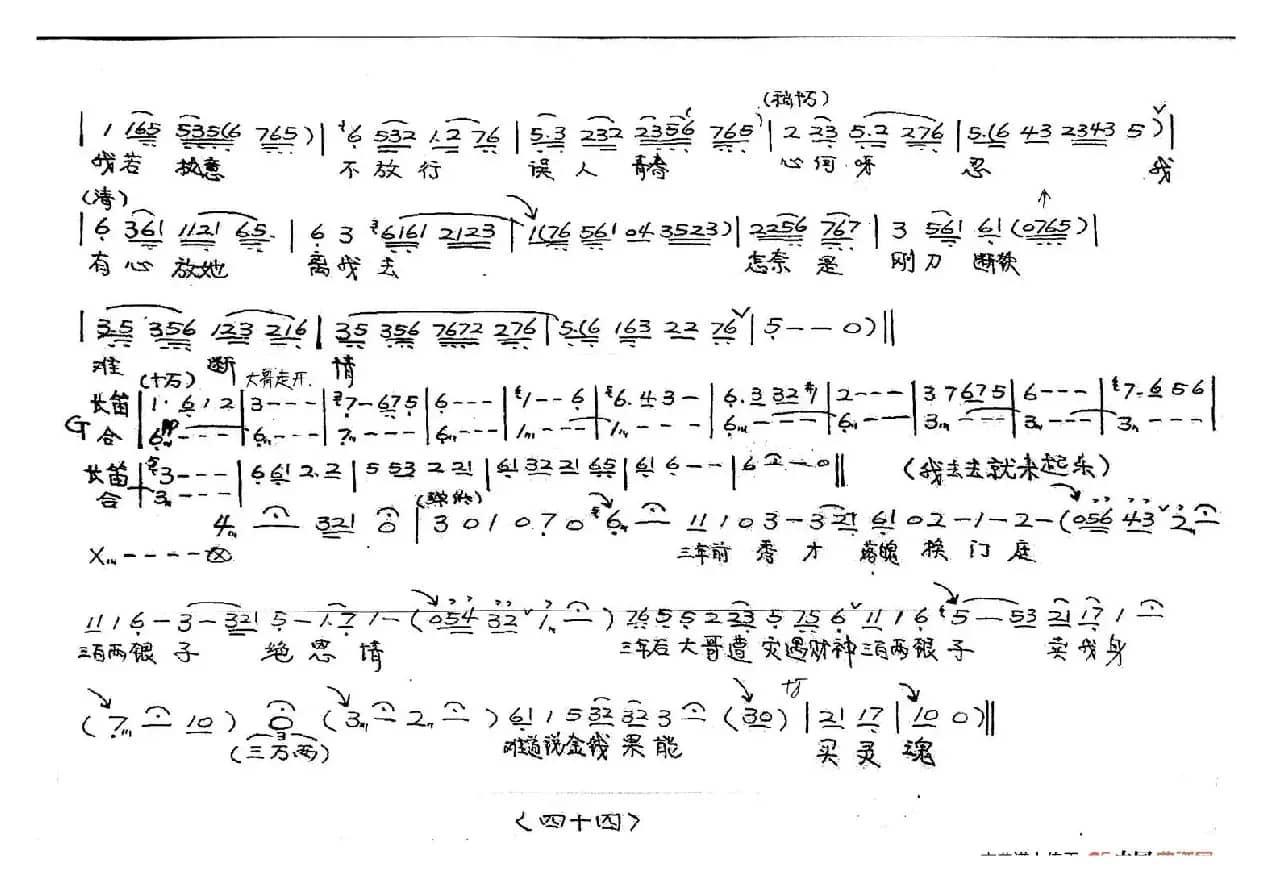 (稍巧)
| 1 165 535(6 765) | 6 532 1.2 76 | 5.3 232 2356 765 | 2 23 5.2 276 | 5.(6 43 2343 5) |
我若 执意 不放行 误人 青春 心何呀 忍 我
(清)
| 6 361 1121 65. | 6 3 6161 2123 | 1(76 561 04 3523) | 2256 767 | 3 561 61(0765) |
有心 放她 离我去 怎奈 是 刚刀 断铁
| 3.5 356 123 216 | 35 356 7672 276 | 5.(6 163 22 76 | 5 - - 0) ||
难 断 情
(十万) 大哥走开.
长笛 | 1. 612 | 3 - - - | 7 - 675 | 6 - - - | 1 - - 6 | 6. 43 - | 6.3 32 | 2 - - - | 3 7675 | 6 - - - | 7. 656 |
G 合 | 6 - - - | 6 - - - | 7 - - - | 6 - - - | 1 - - - | 1 - - - | 6 - - - | 6 - - - | 3 - - - | 3 - - - | 3 - - - |
长笛 | 3 - - - | 6 61 2.2 | 5 53 2 21 | 61 32 21 65 | 61 6 - - | 6 2 - 0 || (我去去就来起乐)
合 | 3 - - -
4 - 321 0 | 3 0 1 0 7 0 6 - 11 1 0 3 - 3 21 61 0 2 - 1 - 2 - (056 43 2 -
X - - - - ⊗ 三年前 秀才 落魄 换门庭
11 1 6 - 3 - 321 5 - 1.7 1 - (054 32 1 - ) 76 5 5 2 23 5 75 6 11 1 6 5 - 53 21 17 1 -
三百两银 子 绝恩情 三年后 大哥遭 灾遇财神 三百两银子 卖我身
(7 - 10) 0 (3 - 2 - ) 61 1 5 32 32 3 - (30) | 21 17 | 10 0) ||
(三万两) 难道说金钱 果能 买灵魂
(四十四)